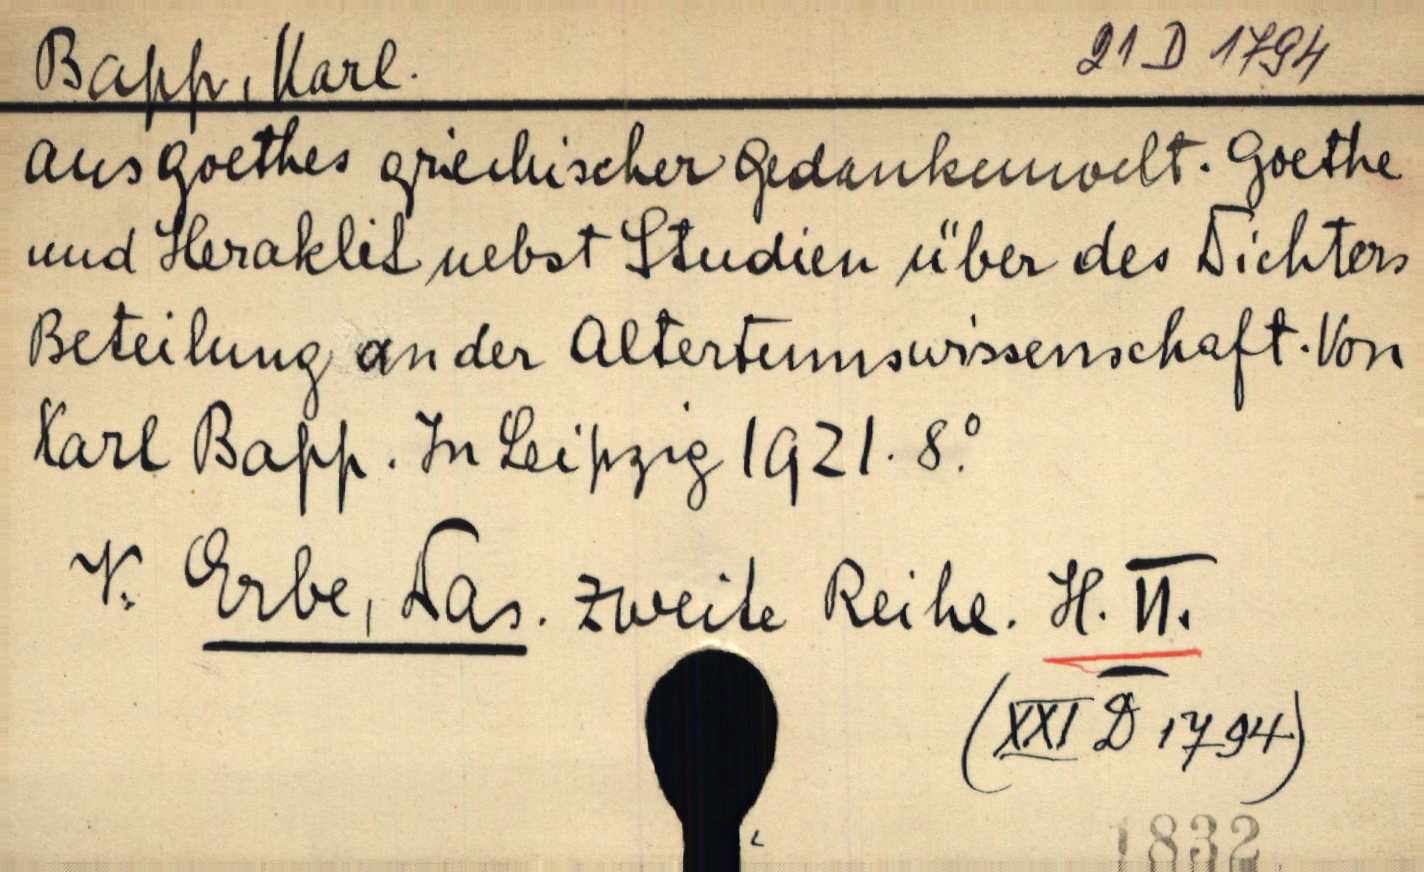 Bapp, Karl. 21 D 1794
Aus Goethes griechischer Gedankenwelt. Goethe
und Heraklit nebst Studien über des Dichters
Beteilung an der Altertumswissenschaft. Von
Karl Bapp. In Leipzig 1921. 8.°
V. Erbe, Das. Zweite Reihe. H. II.
(XXI D 1794)
1832